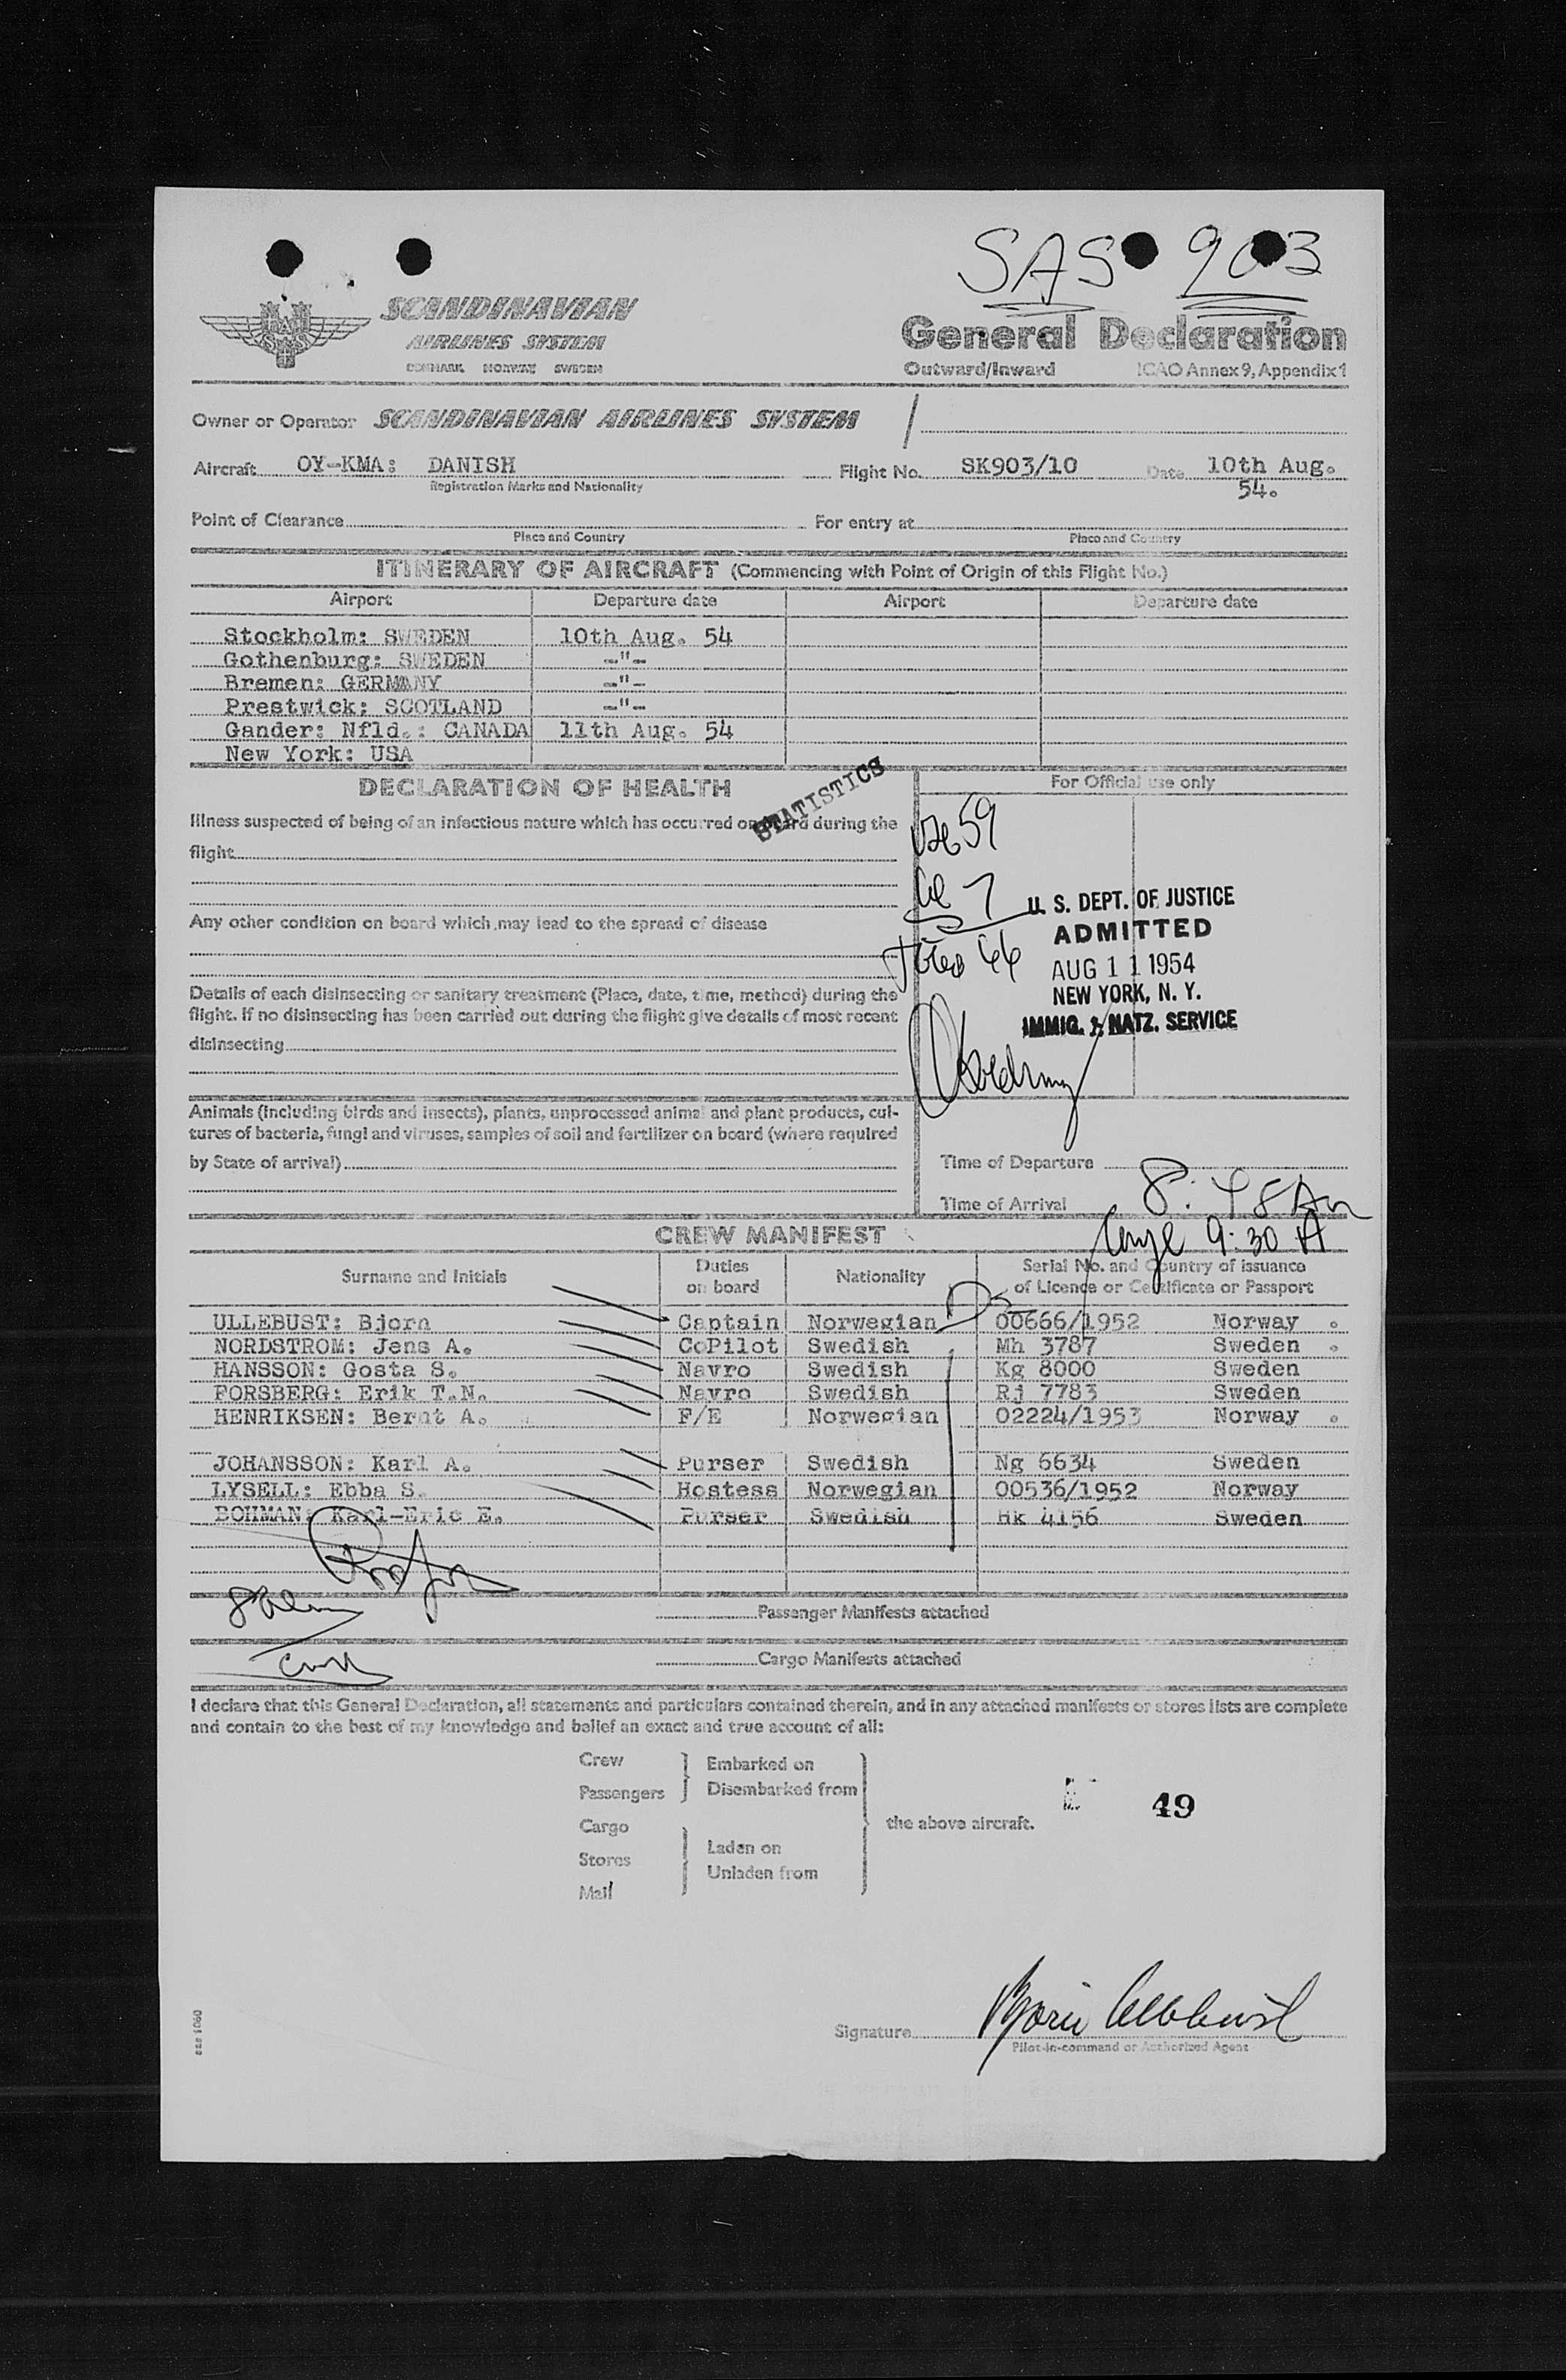 SAS 903
SCANDINAVIAN
AIRLINES SYSTEM
DENMARK NORWAY SWEDEN
General Declaration
Outward/Inward ICAO Annex 9, Appendix 1
Owner or Operator SCANDINAVIAN AIRLINES SYSTEM
Aircraft OY-KMA: DANISH Flight No. SK903/10 Date 10th Aug.
54.
Registration Marks and Nationality
Point of Clearance For entry at
Place and Country Place and Country
ITINERARY OF AIRCRAFT (Commencing with Point of Origin of this Flight No.)
Airport Departure date Airport Departure date
Stockholm: SWEDEN 10th Aug. 54
Gothenburg: SWEDEN -"-
Bremen: GERMANY -"-
Prestwick: SCOTLAND -"-
Gander: Nfld.: CANADA 11th Aug. 54
New York: USA
DECLARATION OF HEALTH
STATISTICS
For Official use only
Illness suspected of being of an infectious nature which has occurred on board during the
flight
Any other condition on board which may lead to the spread of disease
Details of each disinsecting or sanitary treatment (Place, date, time, method) during the
flight. If no disinsecting has been carried out during the flight give details of most recent
disinsecting
59
7
66
U. S. DEPT. OF JUSTICE
ADMITTED
AUG 11 1954
NEW YORK, N. Y.
IMMIG. & NATZ. SERVICE
Animals (including birds and insects), plants, unprocessed animal and plant products, cul-
tures of bacteria, fungi and viruses, samples of soil and fertilizer on board (where required
by State of arrival)
Time of Departure
Time of Arrival 8:48 Am
9:30 A
CREW MANIFEST
Surname and Initials Duties on board Nationality Serial No. and Country of issuance of Licence or Certificate or Passport
ULLEBUST: Bjorn Captain Norwegian 00666/1952 Norway .
NORDSTROM: Jens A. CoPilot Swedish Mh 3787 Sweden .
HANSSON: Gosta S. Navro Swedish Kg 8000 Sweden
FORSBERG: Erik T.N. Navro Swedish Rj 7783 Sweden
HENRIKSEN: Bernt A. F/E Norwegian 02224/1953 Norway .
JOHANSSON: Karl A. Purser Swedish Ng 6634 Sweden
LYSELL: Ebba S. Hostess Norwegian 00536/1952 Norway
BOHMAN: Karl-Eric E. Purser Swedish Hk 4156 Sweden
Passenger Manifests attached
Cargo Manifests attached
I declare that this General Declaration, all statements and particulars contained therein, and in any attached manifests or stores lists are complete
and contain to the best of my knowledge and belief an exact and true account of all:
Crew
Passengers
Embarked on
Disembarked from
Cargo
Stores
Mail
Laden on
Unladen from
the above aircraft.
49
Signature
Pilot-in-command or Authorized Agent